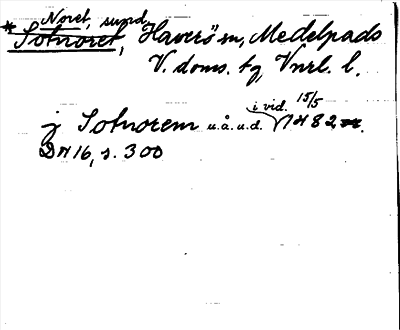 Noret, sund,
* Sotnoret, Haverö sn, Medelpads
V. doms. tg, Vnrl. l.
i vid. 15/5
j Sotnorem u.å.u.d. 1482.
DN 16, s. 300